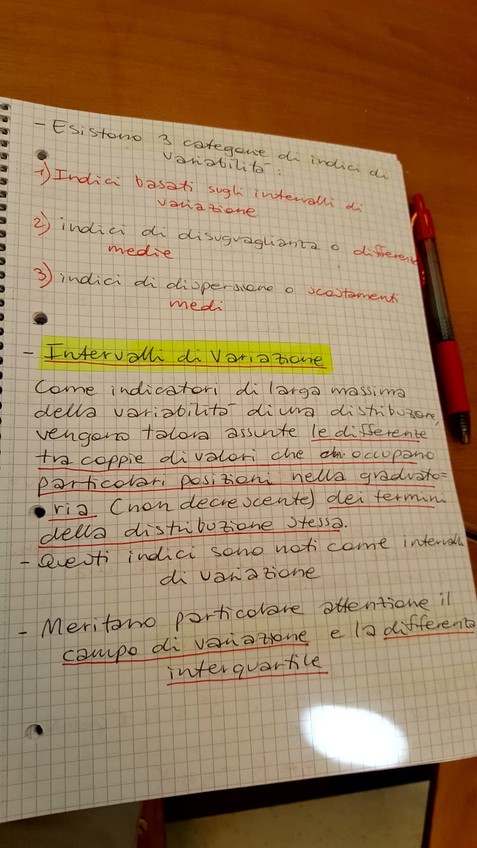 - Esistono 3 categorie di indici di
variabilità:
1) Indici basati sugli intervalli di
variazione
2) indici di disuguaglianza o differenze
medie
3) indici di dispersione o scostamenti
medi
- Intervalli di Variazione
Come indicatori di larga massima
della variabilità di una distribuzione,
vengono talora assunte le differenze
tra coppie di valori che occupano
particolari posizioni nella graduato=
ria (non decrescente) dei termini
della distribuzione stessa.
- Questi indici sono noti come intervalli
di variazione
- Meritano particolare attenzione il
campo di variazione e la differenza
interquartile